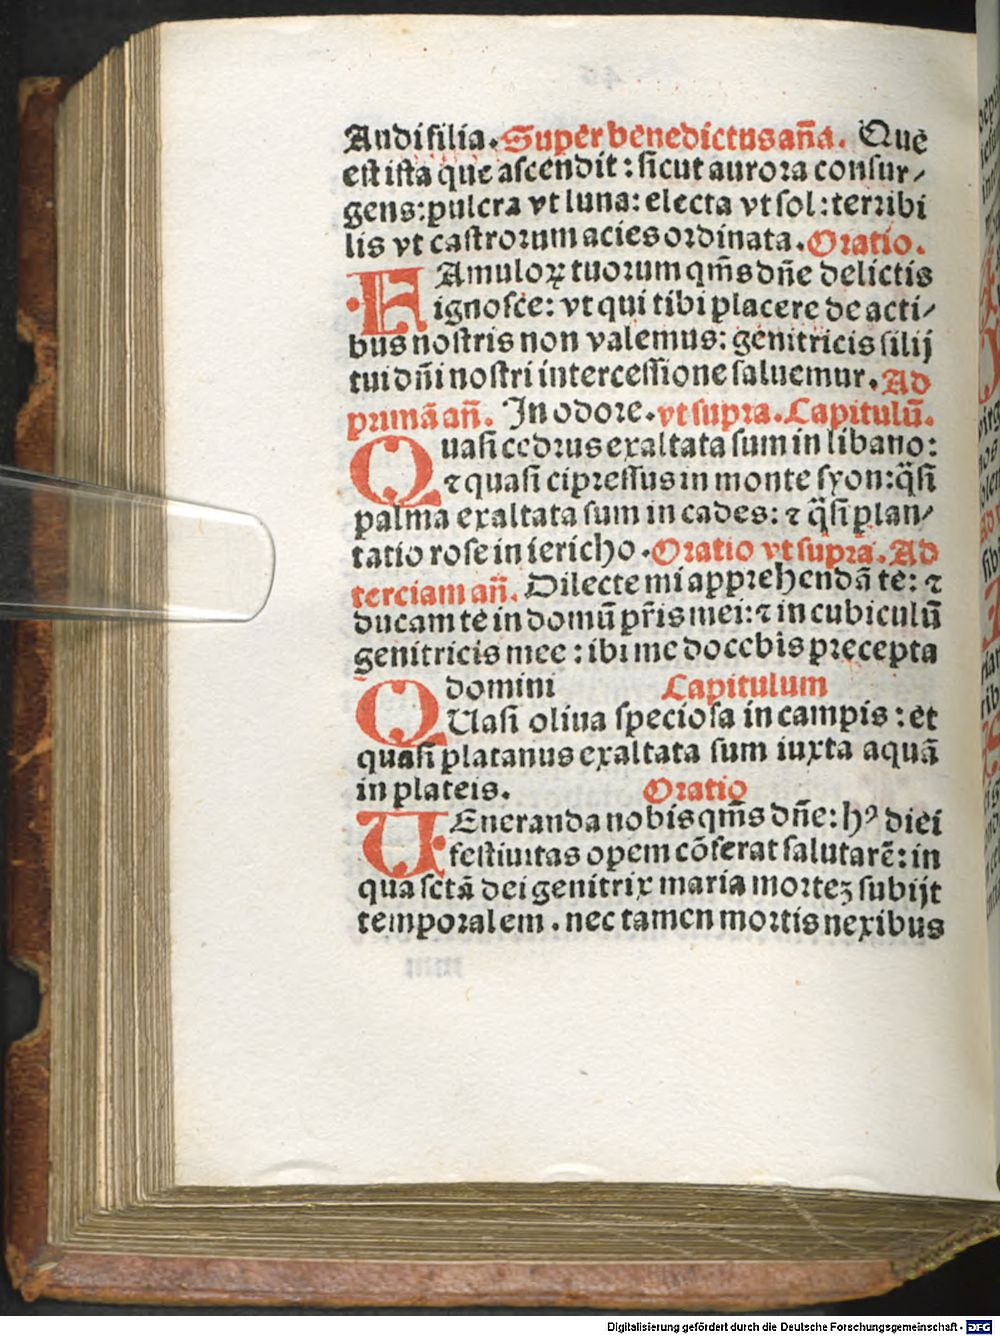 Audi filia. Super benedictus añа. Que
est ista que ascendit: sicut aurora consur/
gens: pulcra vt luna: electa vt sol: terribi
lis vt castrorum acies ordinata. Oratio.
FAmuloꝝ tuorum qm̃s dñe delictis
ignosce: vt qui tibi placere de acti/
bus nostris non valemus: genitricis filij
tui dñi nostri intercessione saluemur. Ad
primã añ. In odore. vt supra. Capitulũ.
Quasi cedrus exaltata sum in libano:
⁊ quasi cipressus in monte syon: q̃si
palma exaltata sum in cades: ⁊ q̃si plan/
tatio rose in iericho. Oratio vt supra. Ad
terciam añ. Dilecte mi apprehendã te: ⁊
ducam te in domũ pr̃is mei: ⁊ in cubiculũ
genitricis mee: ibi me docebis precepta
domini Capitulum
QUasi oliua speciosa in campis: et
quasi platanus exaltata sum iuxta aquã
in plateis. Oratio
VEneranda nobis qm̃s dñe: hꝰ diei
festiuitas opem cõferat salutarẽ: in
qua sctã dei genitrix maria morteꝫ subijt
temporalem. nec tamen mortis nexibus
Digitalisierung gefördert durch die Deutsche Forschungsgemeinschaft - DFG